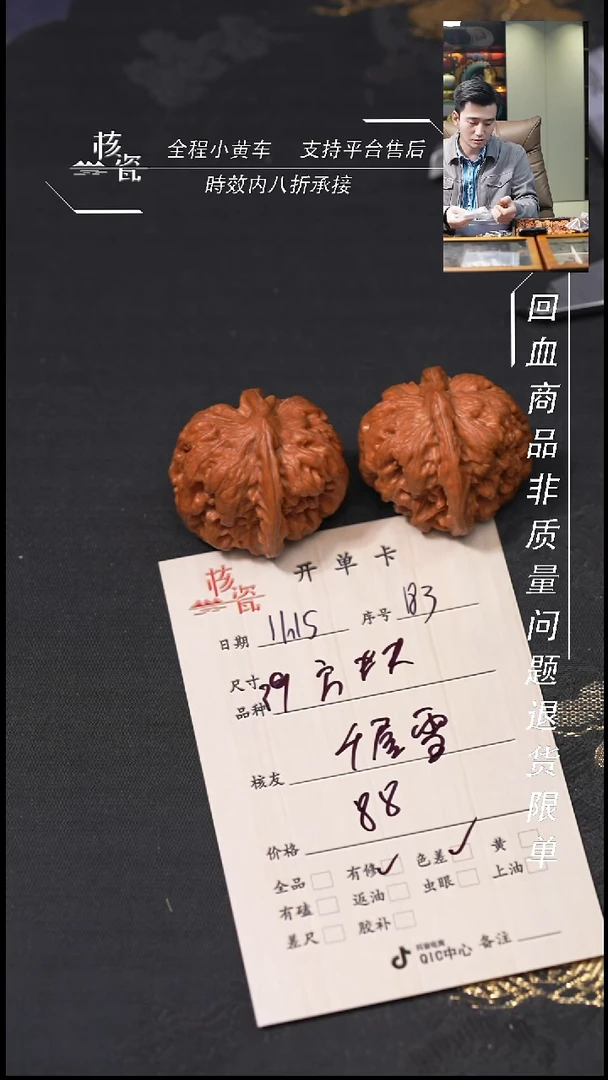 核瓷
全程小黄车 支持平台售后
時效内八折承接
回血商品非质量问题退货限单
核瓷
开单卡
日期 11.15 序号 183
尺寸 39
品种
核友 千屋雪
价格 88
全品 有修✓ 色差✓ 黄
有磕 返油 虫眼 上油
差尺 胶补
抖音电商
QIC中心 备注